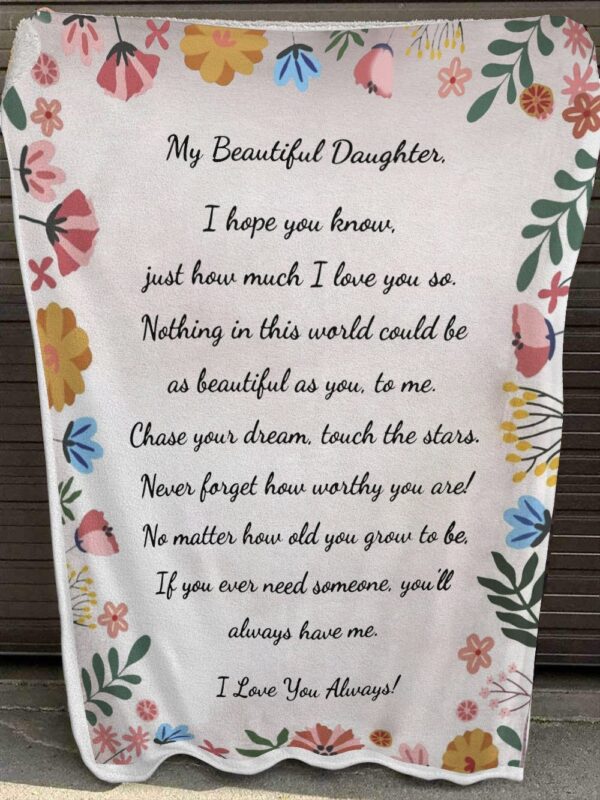 My Beautiful Daughter,
I hope you know,
just how much I love you so.
Nothing in this world could be
as beautiful as you, to me.
Chase your dream, touch the stars.
Never forget how worthy you are!
No matter how old you grow to be,
If you ever need someone, you'll
always have me.
I Love You Always!